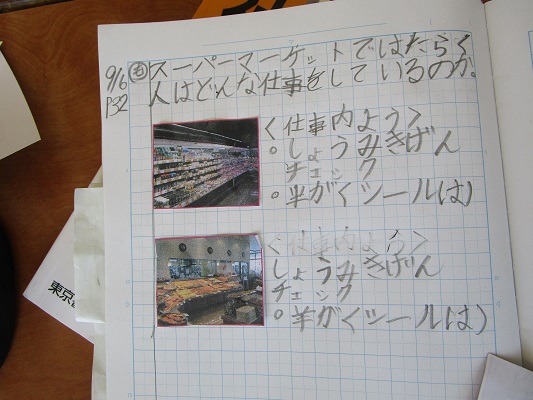 9/6
P32
も スーパーマーケットではたらく
人はどんな仕事をしているのか。
<仕事内よう>
。しょうみきげん
チェック
。半がくシールは)
<仕事内よう>
しょうみきげん
チェック
。半がくシールは)
東京